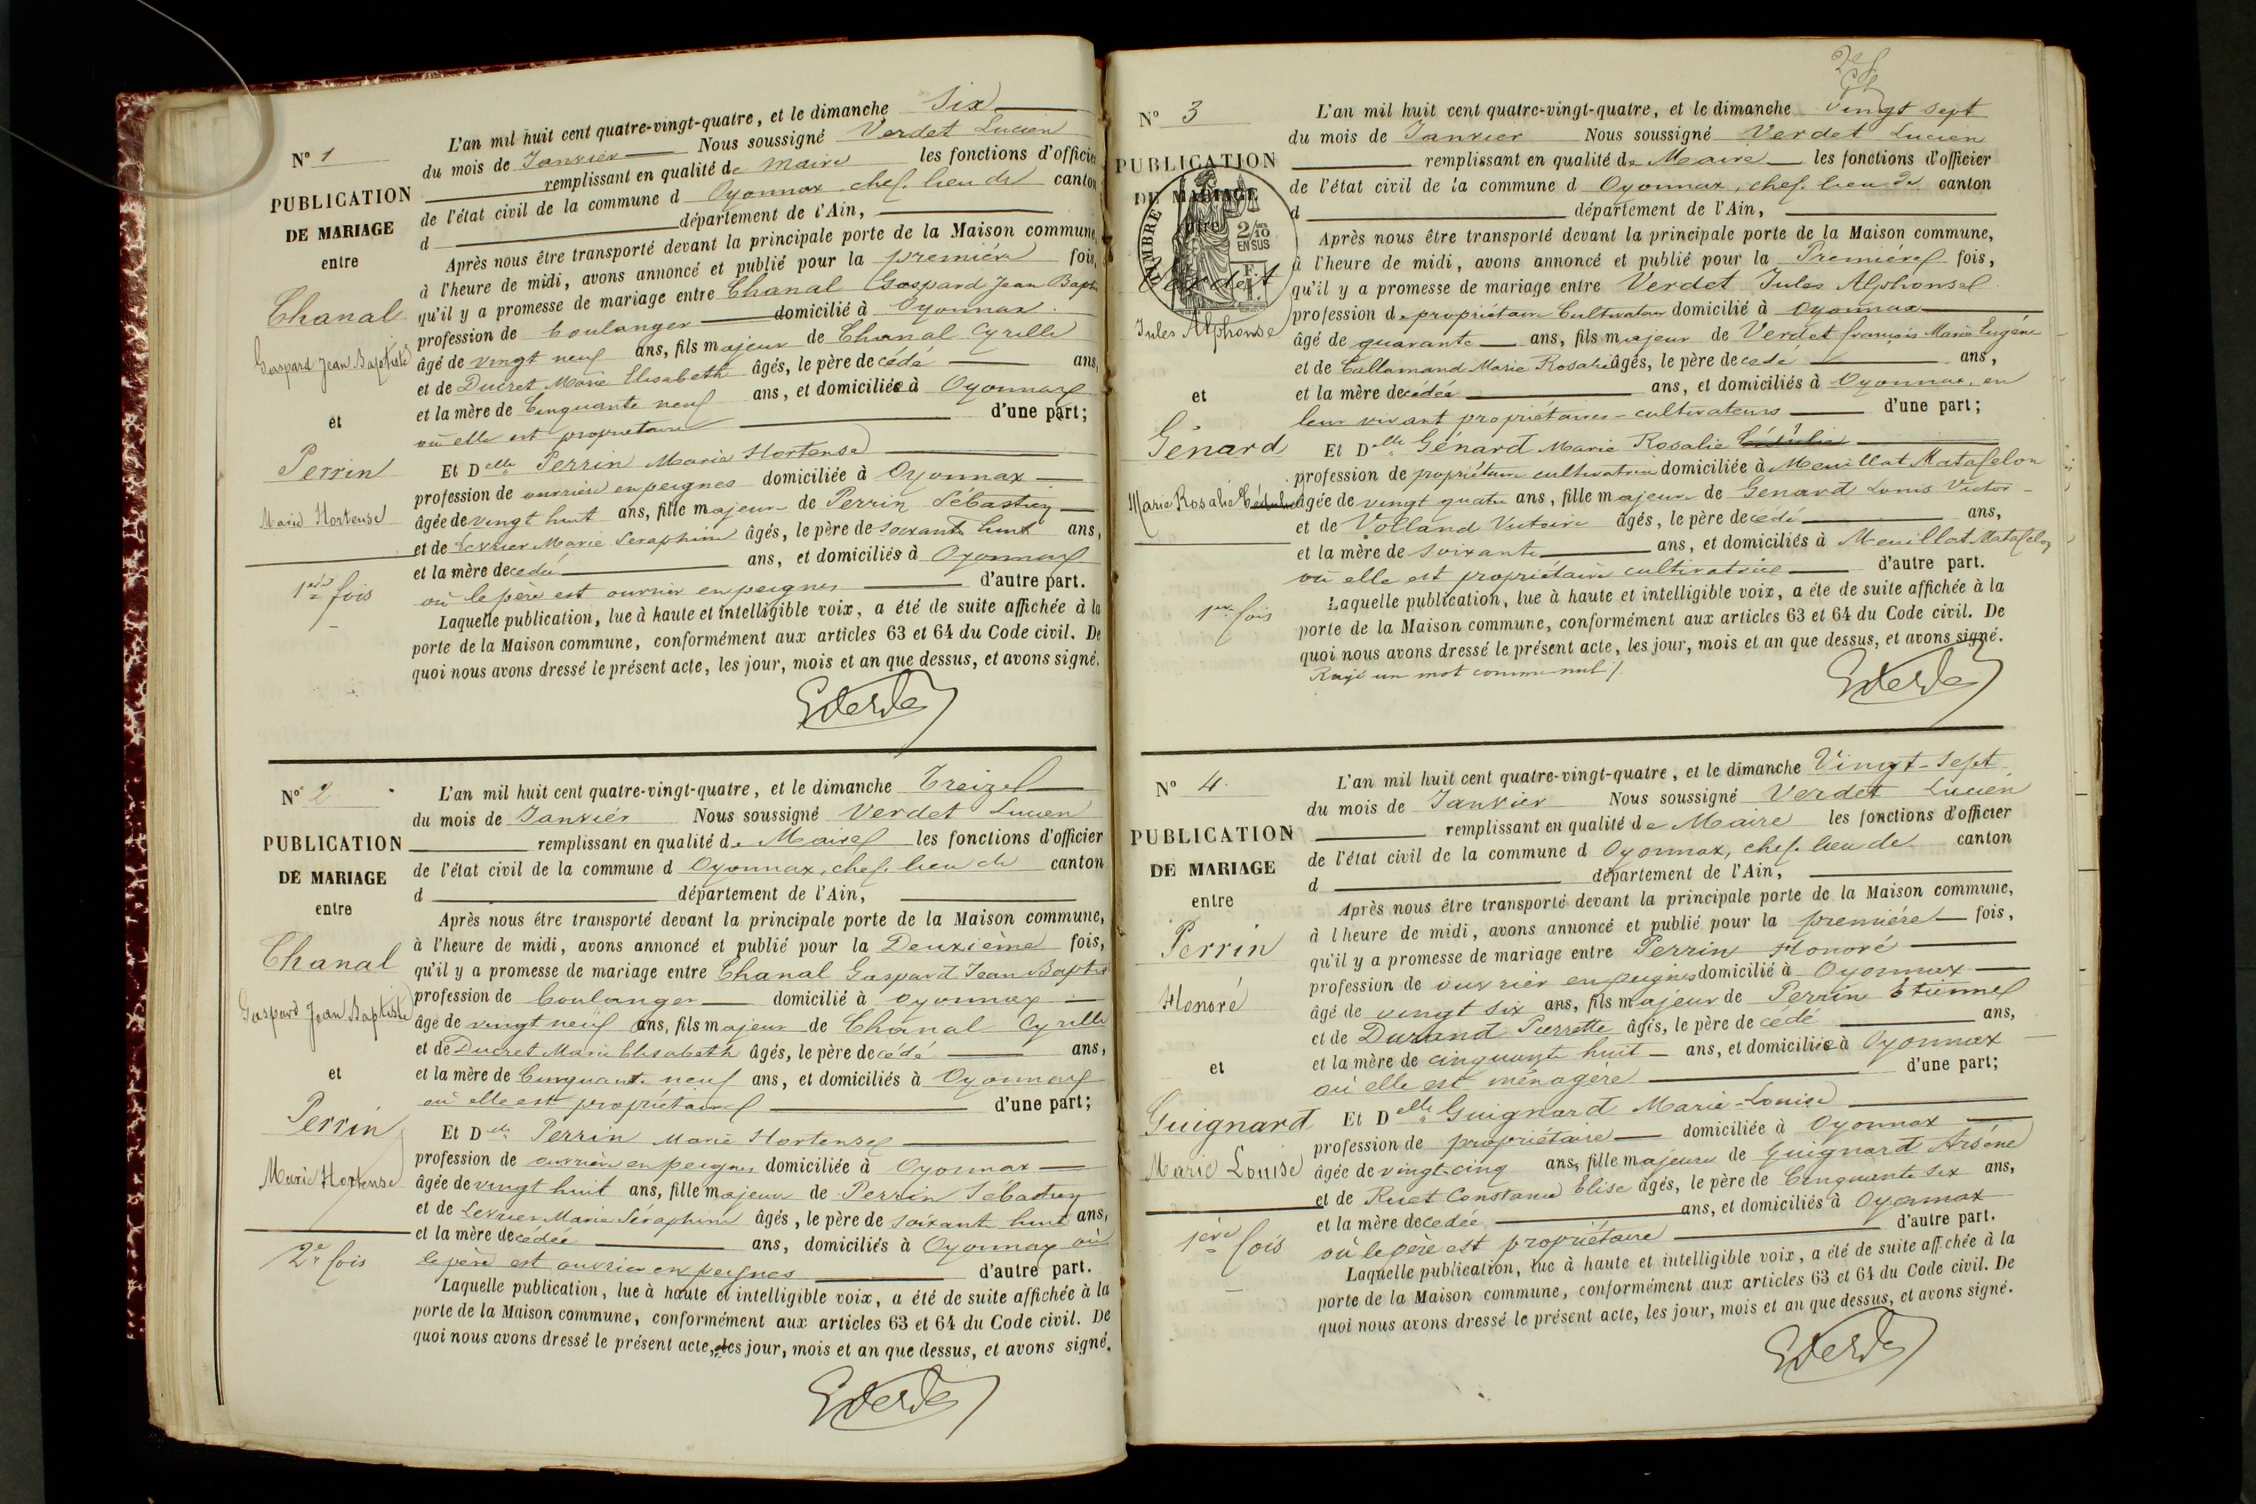 L'an mil huit cent quatre-vingt-quatre, et le dimanche Six
N° 1
du mois de Janvier Nous soussigné Verdet Lucien
PUBLICATION
remplissant en qualité de Maire les fonctions d'officier
DE MARIAGE
de l'état civil de la commune d Oyonnax chef-lieu de canton
entre
d département de l'Ain,
Après nous être transporté devant la principale porte de la Maison commune,
à l'heure de midi, avons annoncé et publié pour la première fois,
Chanal
qu'il y a promesse de mariage entre Chanal Gaspard Jean Bapte
profession de boulanger domicilié à Oyonnax
Gaspard Jean Baptiste
âgé de vingt neuf ans, fils majeur de Chanal Cyrille
et de Ducret Marie Elisabeth âgés, le père decédé ans,
et la mère de Cinquante neuf ans, et domiciliés à Oyonnax
et
où elle est propriétaire d'une part;
Perrin
Et Delle Perrin Marie Hortense
profession de ouvrière en peignes domiciliée à Oyonnax
Marie Hortense
âgée de vingt huit ans, fille majeure de Perrin Sébastien
et de Levrier Marie Séraphine âgés, le père de soixante huit ans,
et la mère decédée ans, et domiciliés à Oyonnax
1ère fois
où le père est ouvrier en peignes d'autre part.
Laquelle publication, lue à haute et intelligible voix, a été de suite affichée à la
porte de la Maison commune, conformément aux articles 63 et 64 du Code civil. De
quoi nous avons dressé le présent acte, les jour, mois et an que dessus, et avons signé.
N° 2
L'an mil huit cent quatre-vingt-quatre, et le dimanche Treize
du mois de Janvier Nous soussigné Verdet Lucien
PUBLICATION
remplissant en qualité de Maire les fonctions d'officier
DE MARIAGE
de l'état civil de la commune d Oyonnax, chef-lieu de canton
entre
d département de l'Ain,
Après nous être transporté devant la principale porte de la Maison commune,
à l'heure de midi, avons annoncé et publié pour la Deuxième fois,
Chanal
qu'il y a promesse de mariage entre Chanal Gaspard Jean Bapte
Gaspard Jean Baptiste
profession de boulanger domicilié à Oyonnax
âgé de vingt neuf ans, fils majeur de Chanal Cyrille
et de Ducret Marie Elisabeth âgés, le père decédé ans,
et
et la mère de Cinquante neuf ans, et domiciliés à Oyonnax
où elle est propriétaire d'une part;
Perrin
Et Delle Perrin Marie Hortense
profession de ouvrière en peignes domiciliée à Oyonnax
Marie Hortense
âgée de vingt huit ans, fille majeure de Perrin Sébastien
et de Levrier Marie Séraphine âgés, le père de soixante huit ans,
et la mère decédée ans, domiciliés à Oyonnax où
2e fois
le père est ouvrier en peignes d'autre part.
Laquelle publication, lue à haute et intelligible voix, a été de suite affichée à la
porte de la Maison commune, conformément aux articles 63 et 64 du Code civil. De
quoi nous avons dressé le présent acte, les jour, mois et an que dessus, et avons signé.
2e f
N° 3
L'an mil huit cent quatre-vingt-quatre, et le dimanche Vingt sept
du mois de Janvier Nous soussigné Verdet Lucien
PUBLICATION
remplissant en qualité de Maire les fonctions d'officier
DE MARIAGE
de l'état civil de la commune d Oyonnax, chef-lieu de canton
entre
TIMBRE
2/10
EN SUS
d département de l'Ain,
Après nous être transporté devant la principale porte de la Maison commune,
à l'heure de midi, avons annoncé et publié pour la Première fois,
Verdet
qu'il y a promesse de mariage entre Verdet Jules Alphonse
Jules Alphonse
profession de propriétaire Cultivateur domicilié à Oyonnax
âgé de quarante ans, fils majeur de Verdet françois Marie Eugène
et de Callamand Marie Rosalie âgés, le père decédé ans,
et
et la mère decédée ans, et domiciliés à Oyonnax, en
leur vivant propriétaires-cultivateurs d'une part;
Génard
Et Delle Génard Marie Rosalie
profession de propriétaire cultivatrice domiciliée à Meuillat Matafelon
Marie Rosalie
âgée de vingt quatre ans, fille majeure de Génard Louis Victor
et de Volland Victoire âgés, le père decédé ans,
et la mère de soixante ans, et domiciliés à Meuillat Matafelon
où elle est propriétaire cultivatrice d'autre part.
1ère fois
Laquelle publication, lue à haute et intelligible voix, a été de suite affichée à la
porte de la Maison commune, conformément aux articles 63 et 64 du Code civil. De
quoi nous avons dressé le présent acte, les jour, mois et an que dessus, et avons signé.
Rayé un mot comme nul
N° 4
L'an mil huit cent quatre-vingt-quatre, et le dimanche Vingt-Sept
du mois de Janvier Nous soussigné Verdet Lucien
PUBLICATION
remplissant en qualité de Maire les fonctions d'officier
DE MARIAGE
de l'état civil de la commune d Oyonnax, chef-lieu de canton
entre
d département de l'Ain,
Après nous être transporté devant la principale porte de la Maison commune,
à l'heure de midi, avons annoncé et publié pour la première fois,
Perrin
qu'il y a promesse de mariage entre Perrin Honoré
Honoré
profession de ouvrier en peignes domicilié à Oyonnax
âgé de vingt six ans, fils majeur de Perrin Etienne
et de Durand Pierrette âgés, le père decédé ans,
et
et la mère de cinquante huit ans, et domiciliés à Oyonnax
où elle est ménagère d'une part;
Guignard
Et Delle Guignard Marie-Louise
profession de propriétaire domiciliée à Oyonnax
Marie Louise
âgée de vingt-cinq ans, fille majeure de Guignard Arsène
et de Ruet Constance Elise âgés, le père de Cinquante six ans,
et la mère decédée ans, et domiciliés à Oyonnax
1ère fois
où le père est propriétaire d'autre part.
Laquelle publication, lue à haute et intelligible voix, a été de suite affichée à la
porte de la Maison commune, conformément aux articles 63 et 64 du Code civil. De
quoi nous avons dressé le présent acte, les jour, mois et an que dessus, et avons signé.